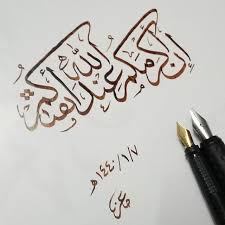 إن أكرمكم عند الله أتقاكم
١٤٤٠/١/٧ هـ